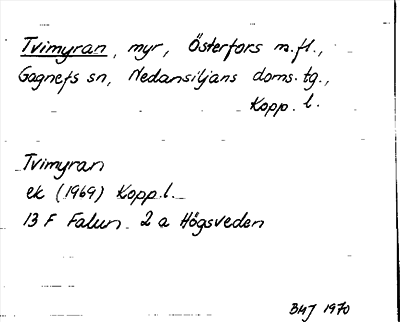 Tvimyran, myr, Österfors m.fl.,
Gagnefs sn, Nedansiljans doms.tg.,
Kopp. l.
Tvimyran
ek (1969) Kopp.l.
13 F Falun 2 a Högsveden
BMJ 1970